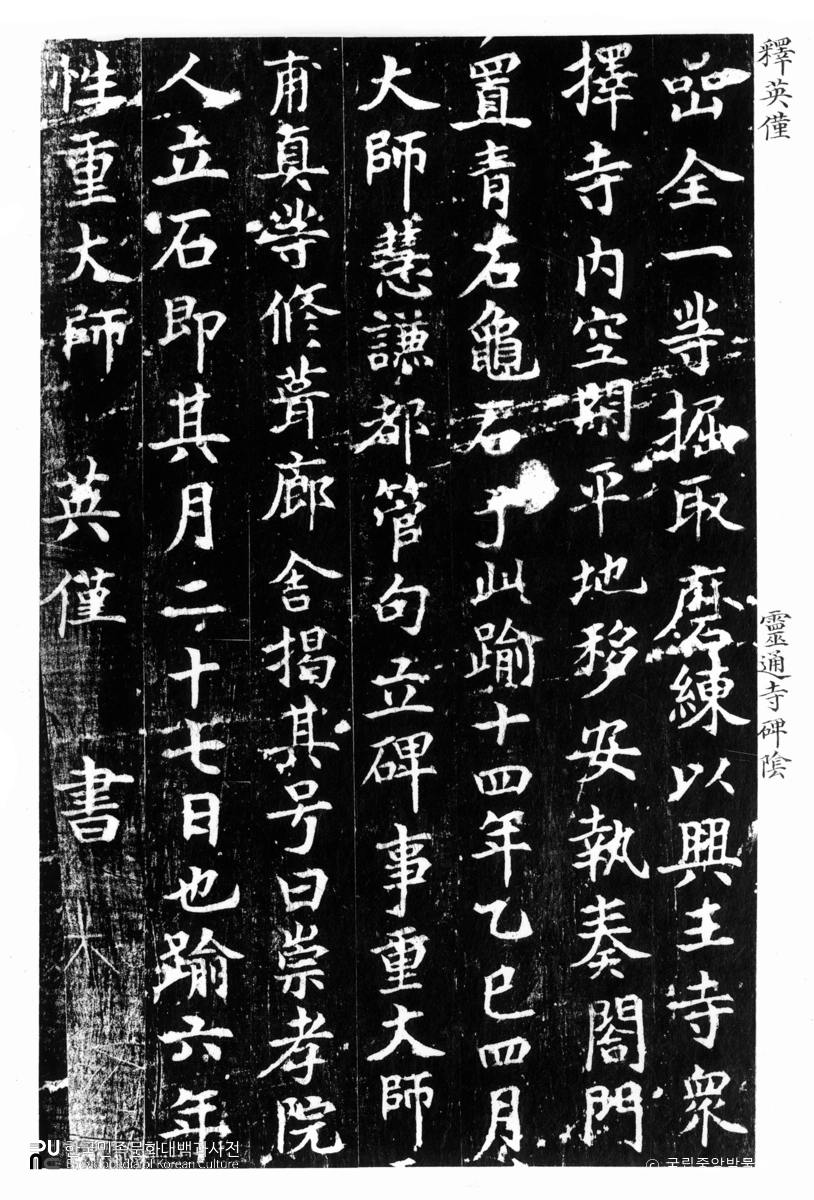 釋英僅
靈通寺碑陰
嵒全一等掘取磨練以興王寺衆
擇寺內空閑平地移安執奏閤門
置青石龜石于此踰十四年乙巳四月
大師慧謙都管句立碑事重大師
甫真等修葺廊舍揭其号曰崇孝院
人立石即其月二十七日也踰六年
性重大師 英僅 書
한국민족문화대백과사전
Encyclopedia of Korean Culture
© 국립중앙박물